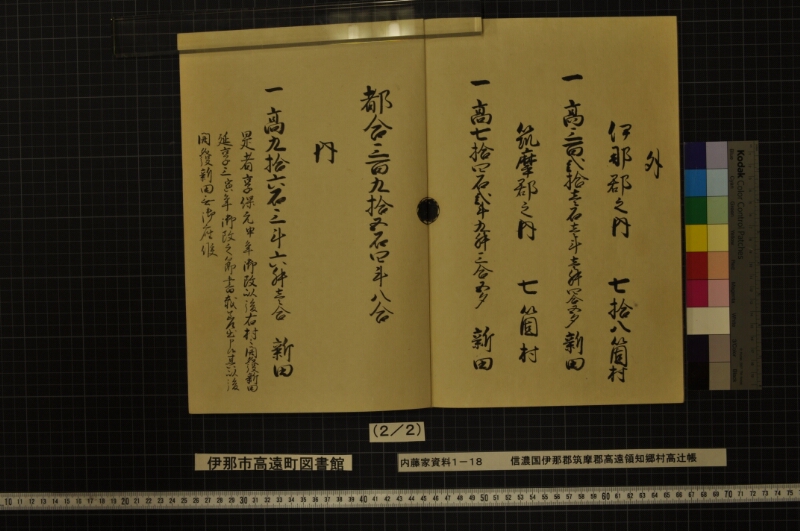 外
伊那郡之内 七拾八箇村
一 高三百弐拾壱石壱斗壱升四合五夕 新田
筑摩郡之内 七箇村
一 高七拾四石弐斗九升三合五夕 新田
都合三百九拾五石四斗八合
内
一 高九拾六石三斗六升壱合 新田
是者享保元申年御改以後右村々開発新田
延享三寅年御改之節
以後
開発新田
(2/2)
伊那市高遠町図書館
内藤家資料1-18 信濃国伊那郡筑摩郡高遠領知郷村高辻帳
Kodak Color Control Patches